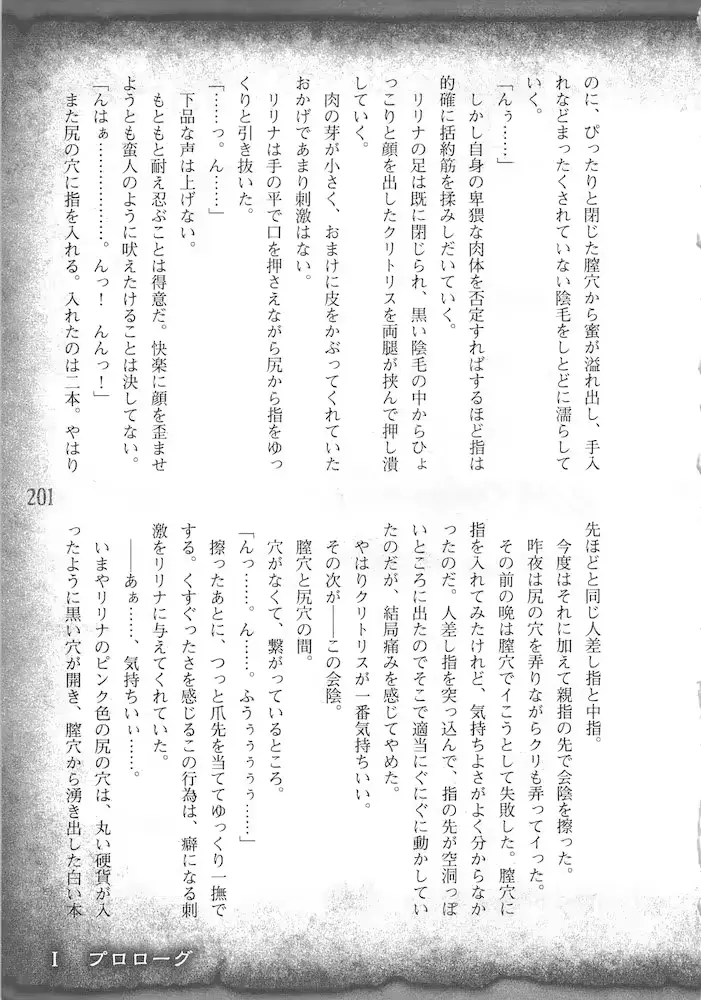 のに、ぴったりと閉じた膣穴から蜜が溢れ出し、手入
れなどまったくされていない陰毛をしとどに濡らして
いく。
「んぅ……」
しかし自身の卑猥な肉体を否定すればするほど指は
的確に括約筋を揉みしだいていく。
リリナの足は既に閉じられ、黒い陰毛の中からひょ
っこりと顔を出したクリトリスを両腿が挟んで押し潰
していく。
肉の芽が小さく、おまけに皮をかぶってくれていた
おかげであまり刺激はない。
リリナは手の平で口を押さえながら尻から指をゆっ
くりと引き抜いた。
「……っ。ん……」
下品な声は上げない。
もともと耐え忍ぶことは得意だ。快楽に顔を歪ませ
ようとも蛮人のように吠えたけることは決してない。
「んはぁ………………。んっ！　んんっ！」
また尻の穴に指を入れる。入れたのは二本。やはり
先ほどと同じ人差し指と中指。
今度はそれに加えて親指の先で会陰を擦った。
昨夜は尻の穴を弄りながらクリも弄ってイった。
その前の晩は膣穴でイこうとして失敗した。膣穴に
指を入れてみたけれど、気持ちよさがよく分からなか
ったのだ。人差し指を突っ込んで、指の先が空洞っぽ
いところに出たのでそこで適当にぐにぐに動かしてい
たのだが、結局痛みを感じてやめた。
やはりクリトリスが一番気持ちいい。
その次が――この会陰。
膣穴と尻穴の間。
穴がなくて、繋がっているところ。
「んっ……。ん……。ふうぅぅぅぅぅ……」
擦ったあとに、つっと爪先を当ててゆっくり一撫で
する。くすぐったさを感じるこの行為は、癖になる刺
激をリリナに与えてくれていた。
――あぁ……、気持ちいぃ……。
いまやリリナのピンク色の尻の穴は、丸い硬貨が入
ったように黒い穴が開き、膣穴から湧き出した白い本
201
I　プロローグ